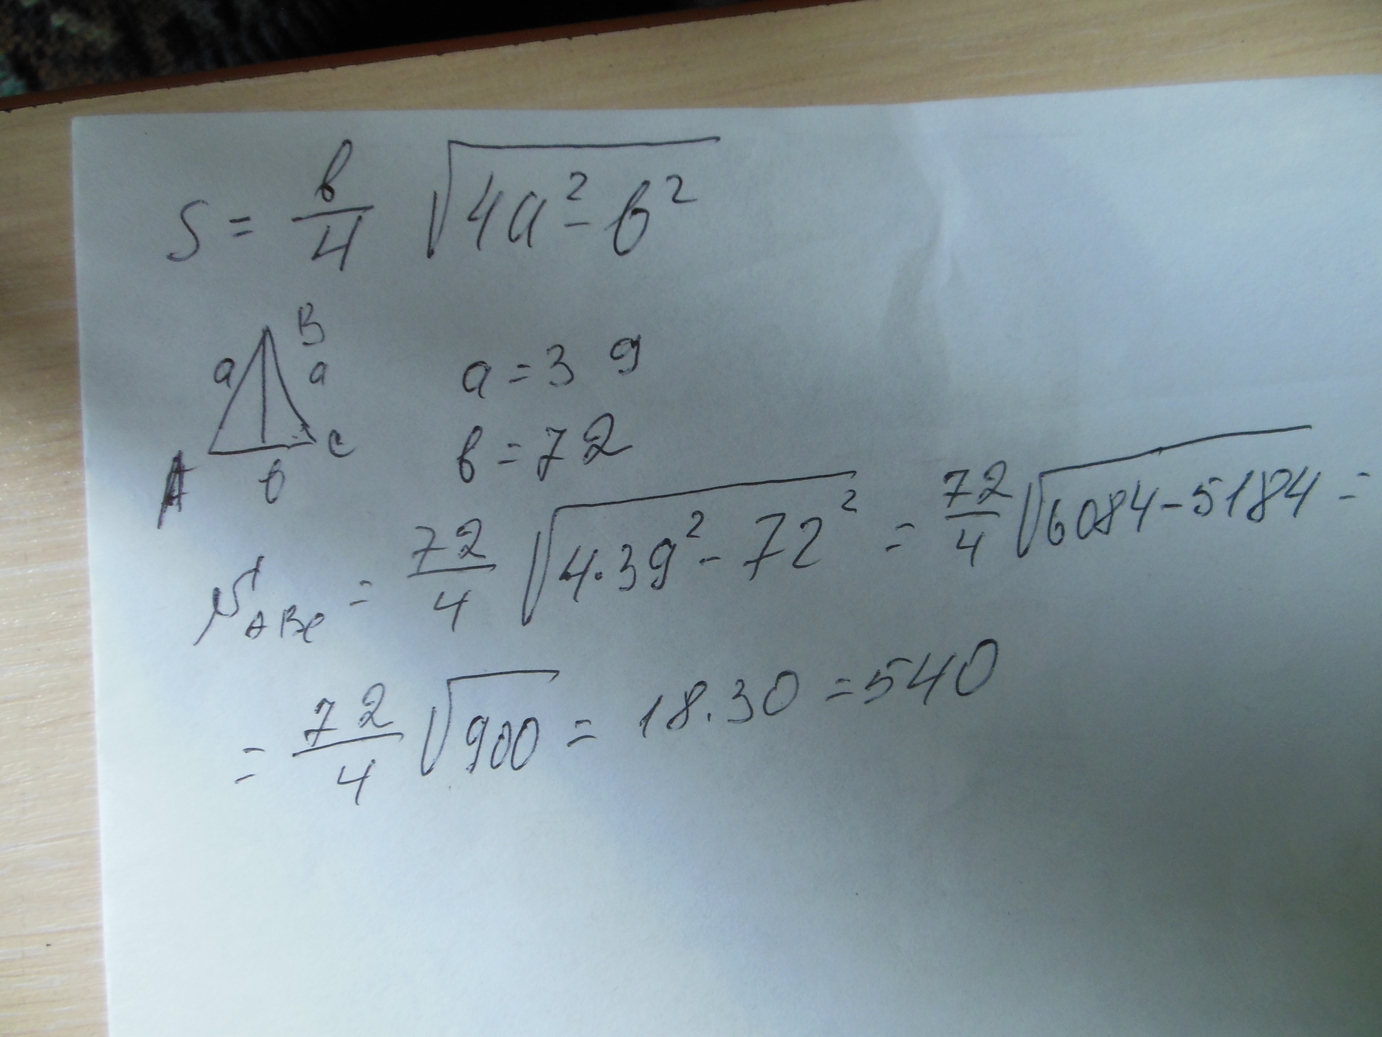 S = в/4 √(4a² - в²)
B
a a
A в C
a = 39
в = 72
S ABC = 72/4 √(4·39² - 72²) = 72/4 √(6084 - 5184) =
= 72/4 √900 = 18·30 = 540